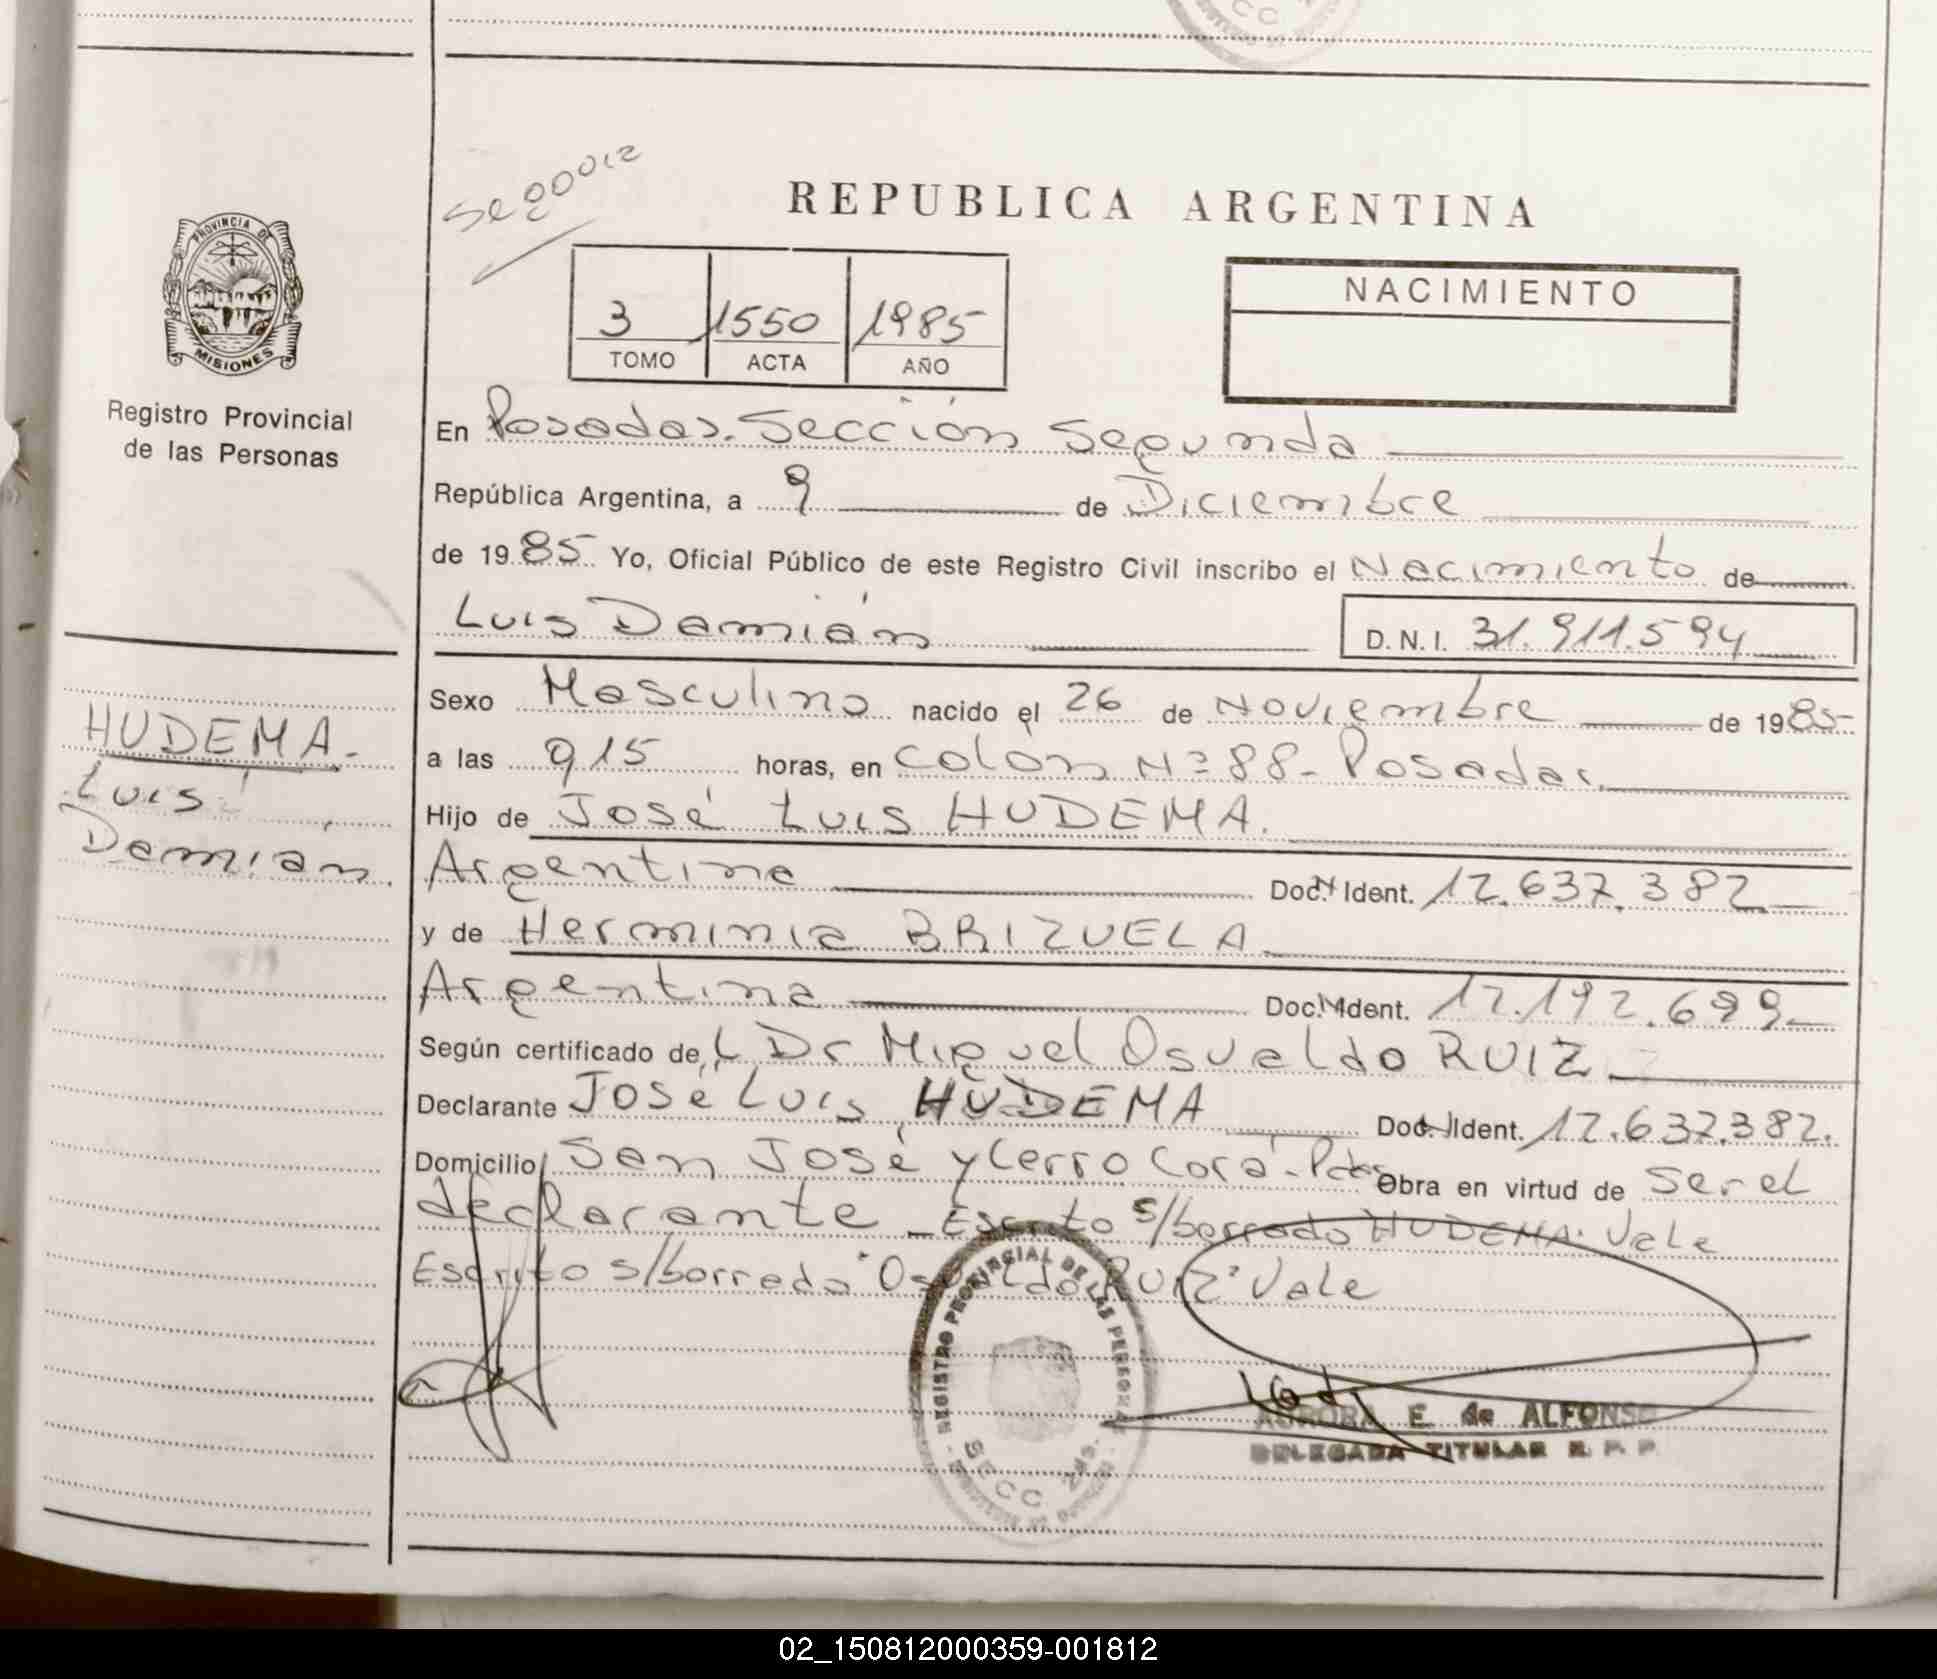 REPUBLICA ARGENTINA
PROVINCIA DE
MISIONES
Registro Provincial
de las Personas
3 1550 1985
TOMO ACTA AÑO
NACIMIENTO
En Posadas. Sección Segunda
República Argentina, a 9 de Diciembre
de 1985 Yo, Oficial Público de este Registro Civil inscribo el Nacimiento de
Luis Damián D.N.I. 31.911.594
HUDEMA.
Luis
Damián.
Sexo Masculino nacido el 26 de Noviembre de 1985
a las 915 horas, en Colón Nº 88- Posadas
Hijo de José Luis HUDEMA.
Argentina Doc. Ident. 12.637.382
y de Herminia BRIZUELA
Argentina Doc. Ident. 12.192.699
Según certificado del Dr Miguel Osvaldo RUIZ
Declarante José Luis HUDEMA Doc. Ident. 12.637.382.
Domicilio San José y Cerro Corá-Pdas Obra en virtud de ser el
declarante Escrito s/borrado HUDEMA. Vale
Escrito s/borrado "Osvaldo RUIZ" Vale
REGISTRO PROVINCIAL DE LAS PERSONAS
SECC 2da.
AURORA E. de ALFONSO
DELEGADA TITULAR R. P. P.
02_150812000359-001812